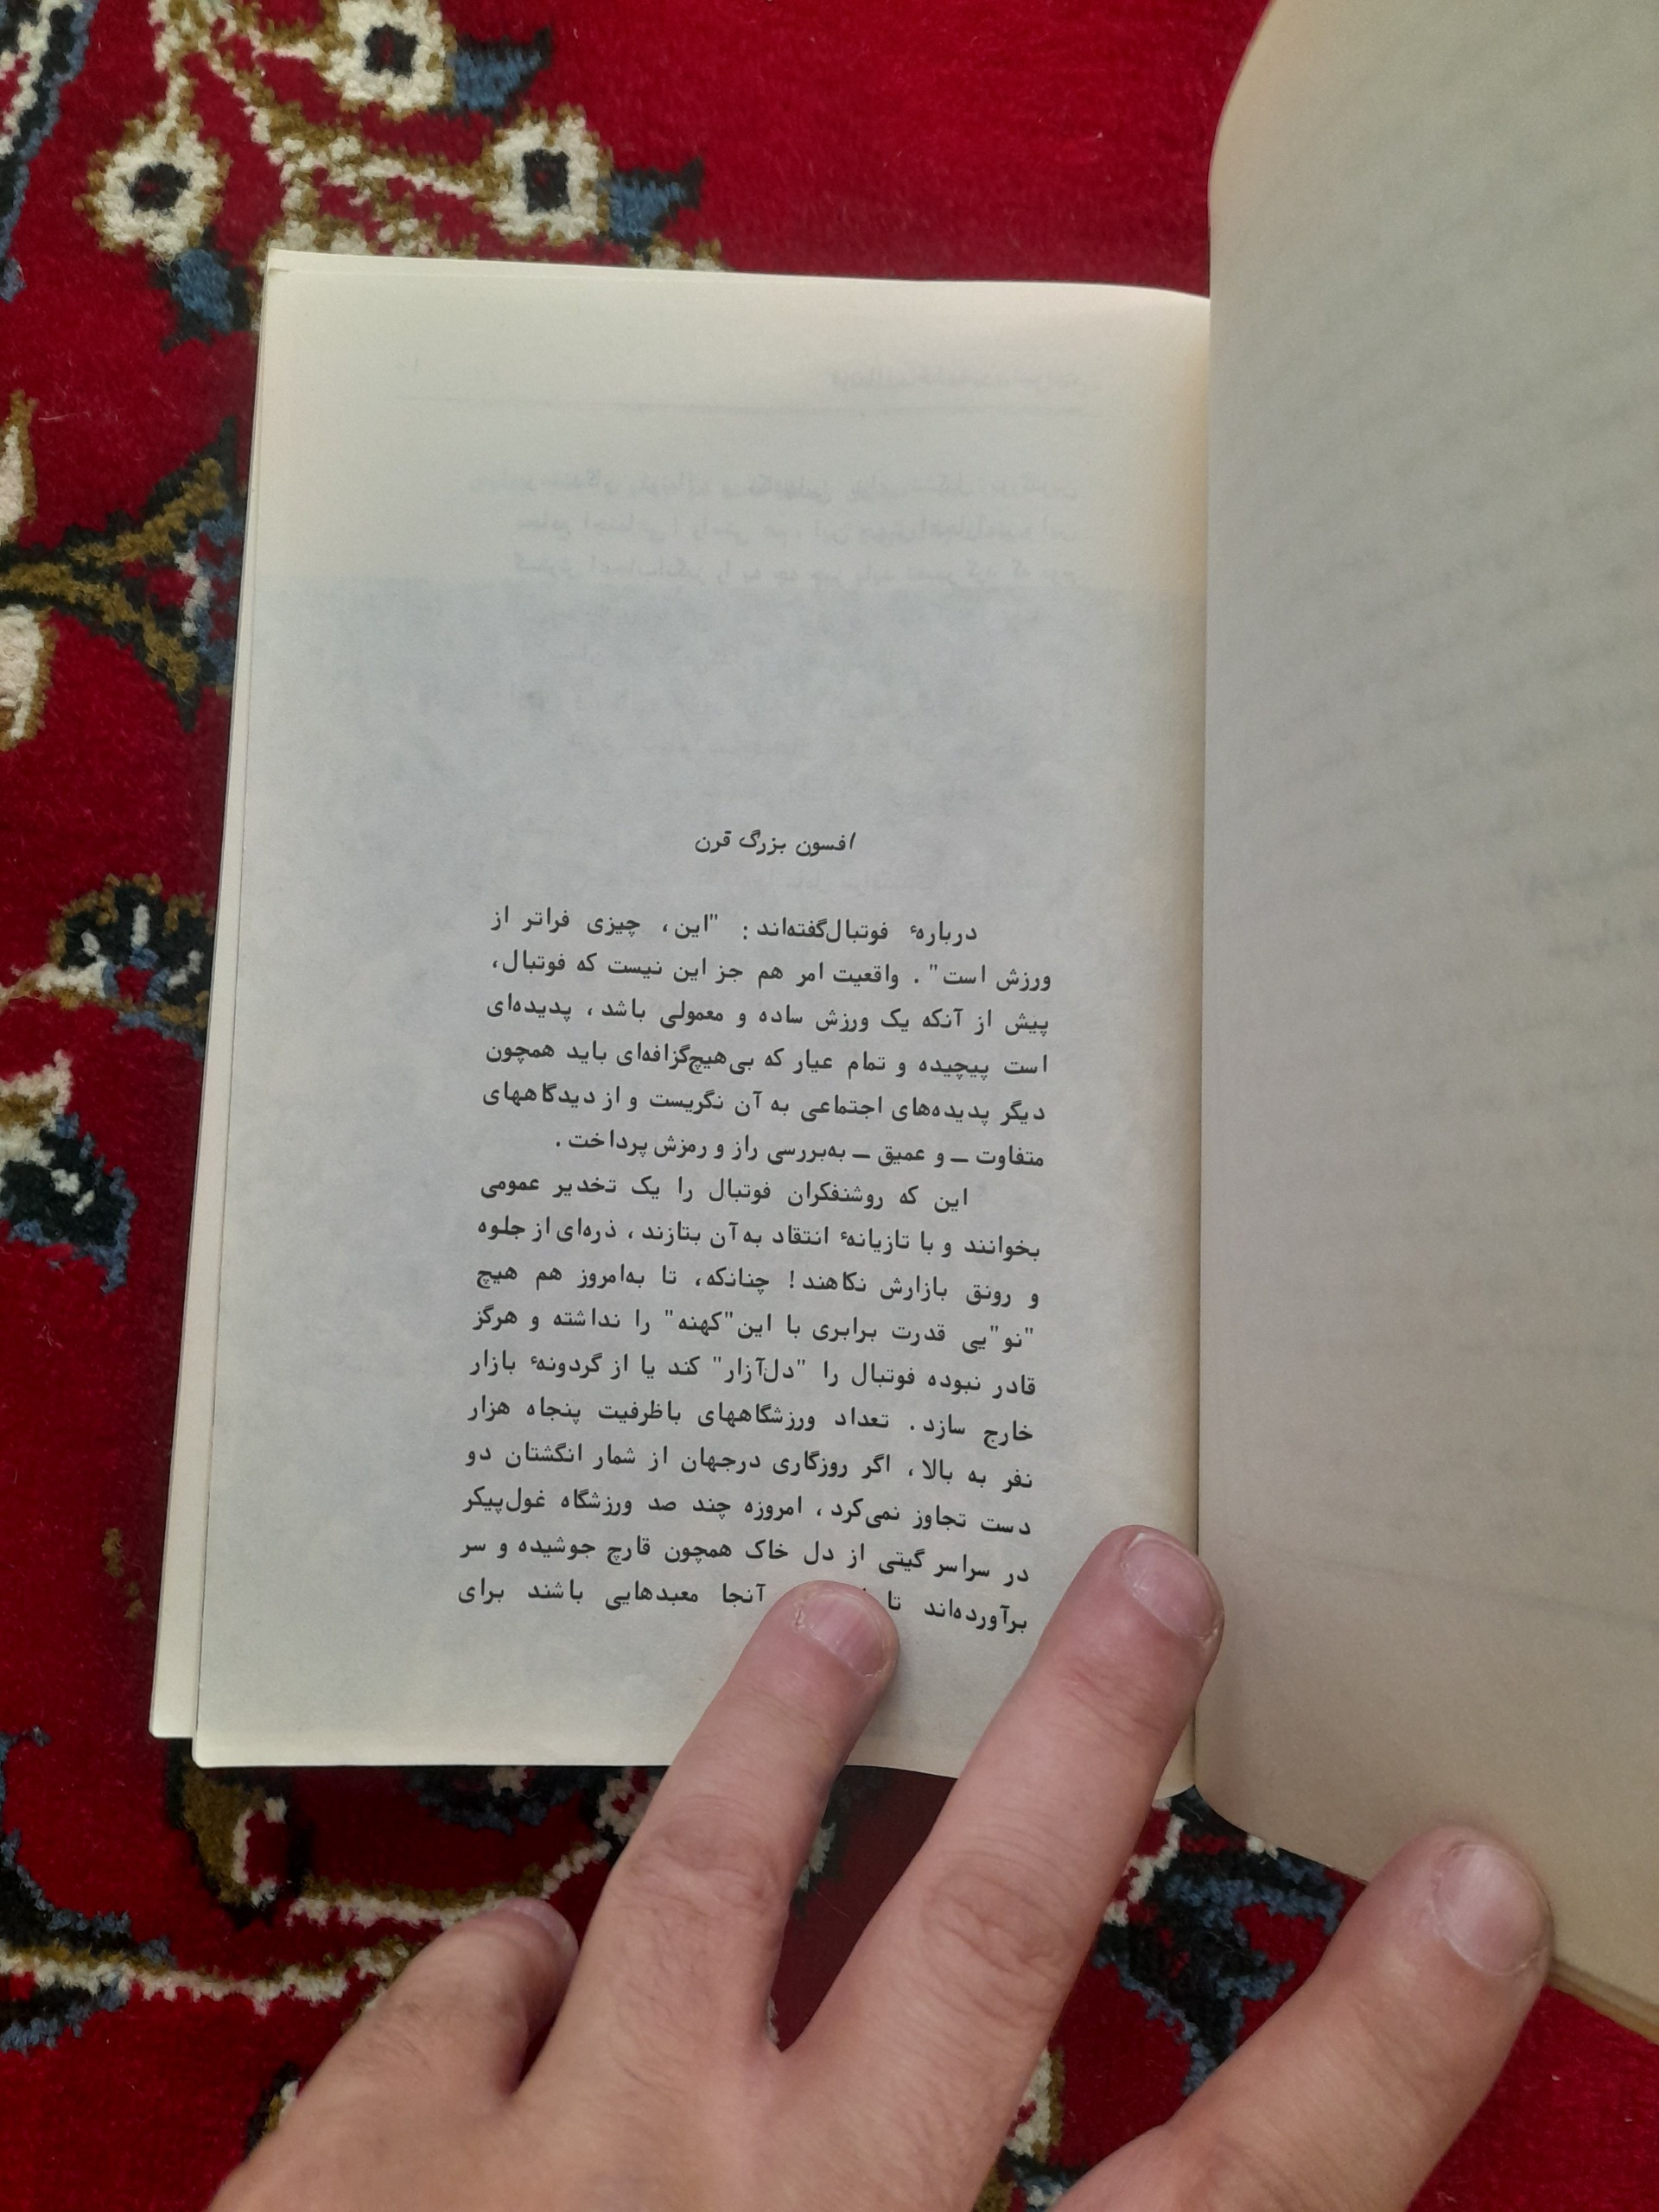 افسون بزرگ قرن
دربارهٔ فوتبال گفته‌اند: "این، چیزی فراتر از
ورزش است". واقعیت امر هم جز این نیست که فوتبال،
پیش از آنکه یک ورزش ساده و معمولی باشد، پدیده‌ای
است پیچیده و تمام عیار که بی‌هیچ‌گزافه‌ای باید همچون
دیگر پدیده‌های اجتماعی به آن نگریست و از دیدگاههای
متفاوت ــ و عمیق ــ به‌بررسی راز و رمزش پرداخت.
این که روشنفکران فوتبال را یک تخدیر عمومی
بخوانند و با تازیانهٔ انتقاد به آن بتازند، ذره‌ای از جلوه
و رونق بازارش نکاهند! چنانکه، تا به‌امروز هم هیچ
"نو"یی قدرت برابری با این "کهنه" را نداشته و هرگز
قادر نبوده فوتبال را "دل‌آزار" کند یا از گردونهٔ بازار
خارج سازد. تعداد ورزشگاههای باظرفیت پنجاه هزار
نفر به بالا، اگر روزگاری درجهان از شمار انگشتان دو
دست تجاوز نمی‌کرد، امروزه چند صد ورزشگاه غول‌پیکر
در سراسر گیتی از دل خاک همچون قارچ جوشیده و سر
برآورده‌اند تا آنجا معبدهایی باشند برای